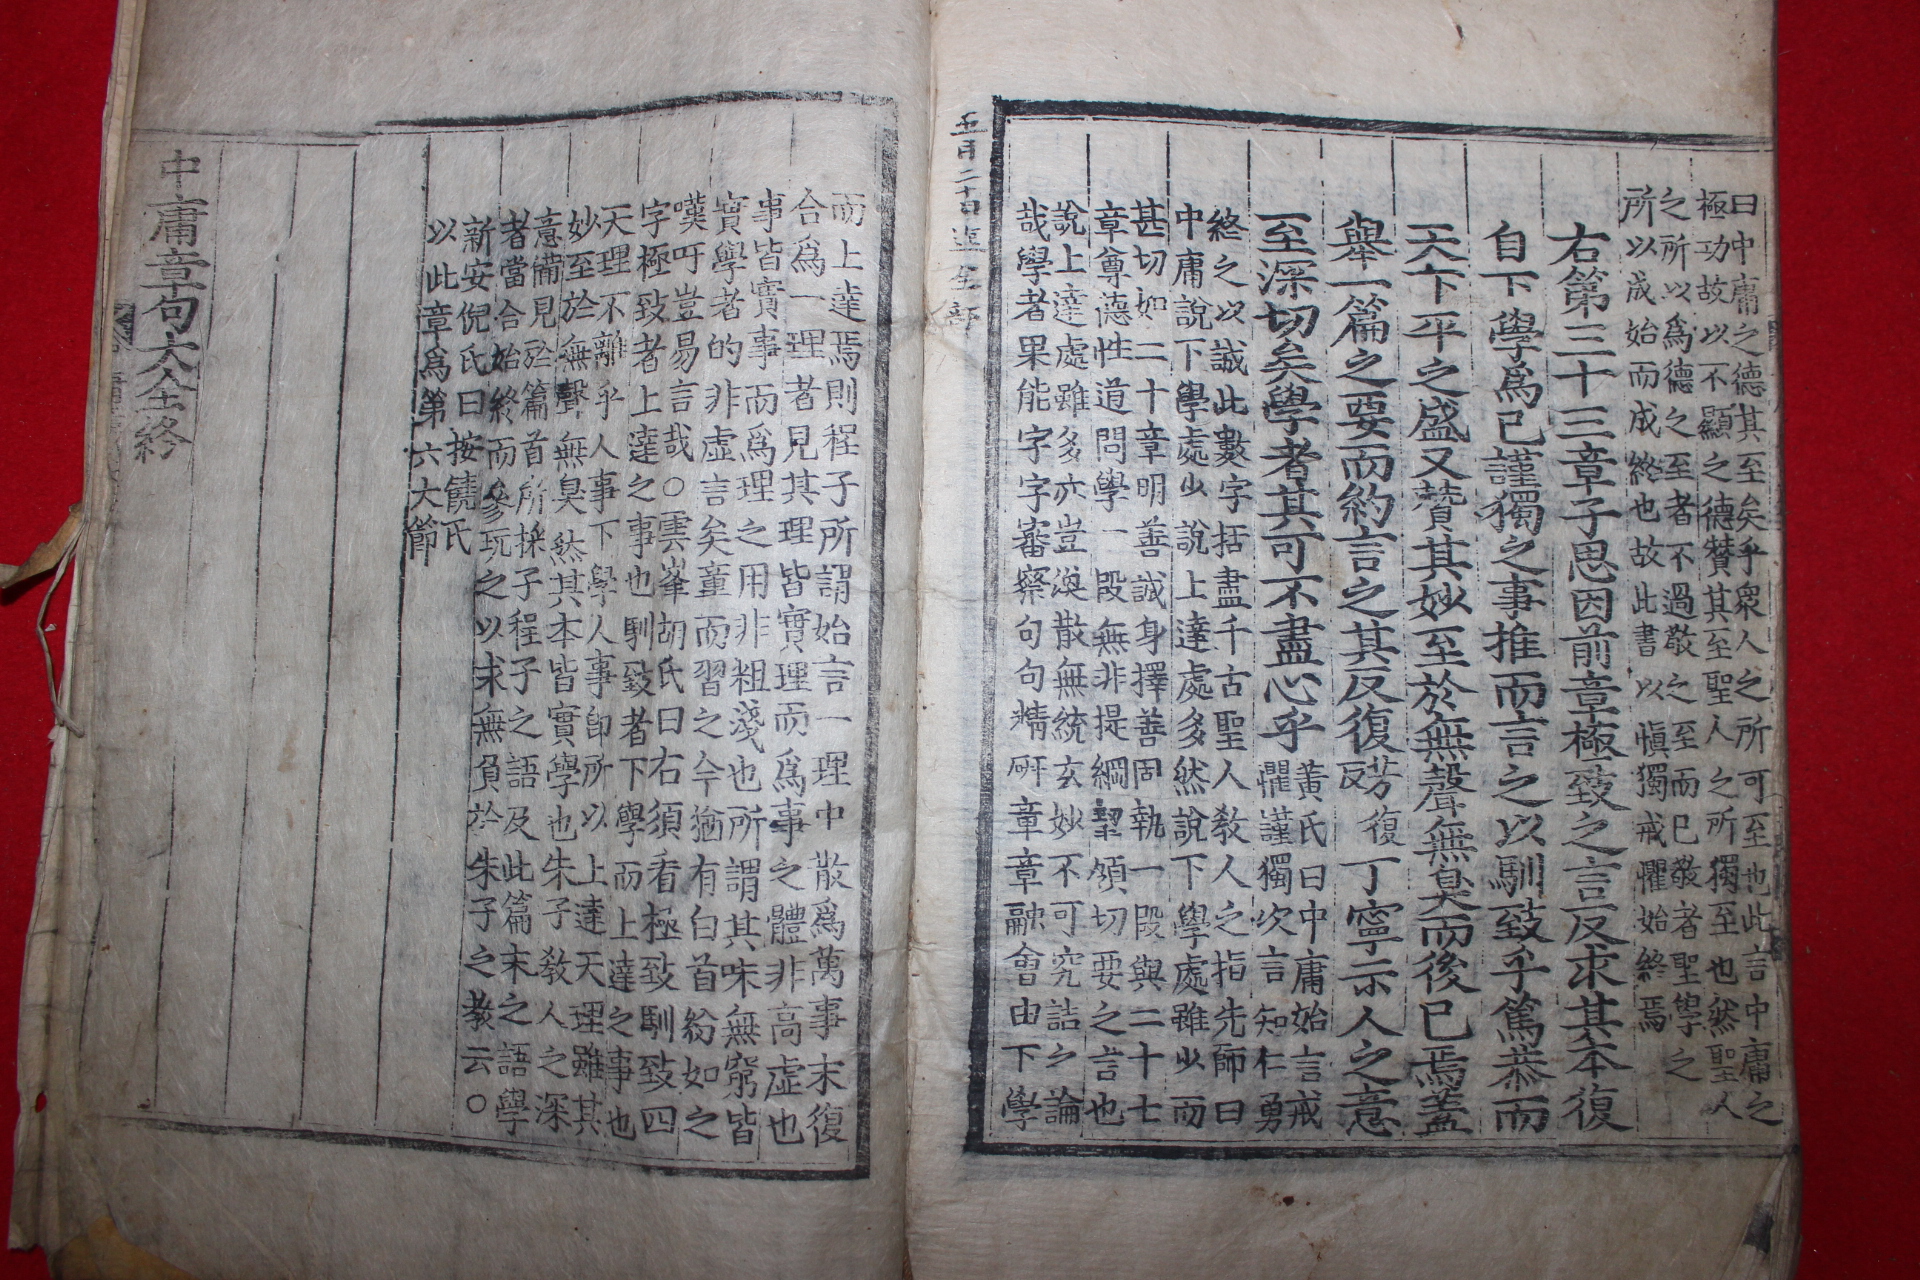 曰中庸之德其至矣乎衆人之所可至也此言中庸之
極功故以不顯之德贊其至聖人之所獨至也然聖人
之所以爲德之至者不過敬之至而已敬者聖學之
所以成始而成終也故此書以愼獨戒懼始終焉
右第三十三章子思因前章極致之言反求其本復
自下學爲已謹獨之事推而言之以馴致乎篤恭而
天下平之盛又贊其妙至於無聲無臭而後已焉蓋
舉一篇之要而約言之其反復芳復反丁寧示人之意
至深切矣學者其可不盡心乎
黃氏曰中庸始言戒
懼謹獨次言知仁勇
終之以誠此數字括盡千古聖人敎人之指先師曰
中庸說下學處少說上達處多然說下學處雖少而
甚切如二十章明善誠身擇善固執一段與二十七
章尊德性道問學一段無非提綱挈領切要之言也
說上達處雖多亦豈渙散無統玄妙不可究詰之論
哉學者果能字字審察句句精硏章章融會由下學
五月二十四
而上達焉則程子所謂始言一理中散爲萬事末復
合爲一理者見其理皆實理而爲事之體非高虛也
事皆實事而爲理之用非粗淺也所謂其味無窮皆
實學者的非虛言矣童而習之今猶有白首紛如之
嘆吁豈易言哉○雲峯胡氏曰右須看極致馴致四
字極致者上達之事也馴致者下學而上達之事也
天理不離乎人事下學人事卽所以上達天理雖其
妙至於無聲無臭然其本皆實學也朱子敎人之深
意備見於篇首所採子程子之語及此篇末之語學
者當合始終而參玩之以求無負於朱子之敎云○
新安倪氏曰按饒氏
以此章爲第六大節
中庸章句大全終